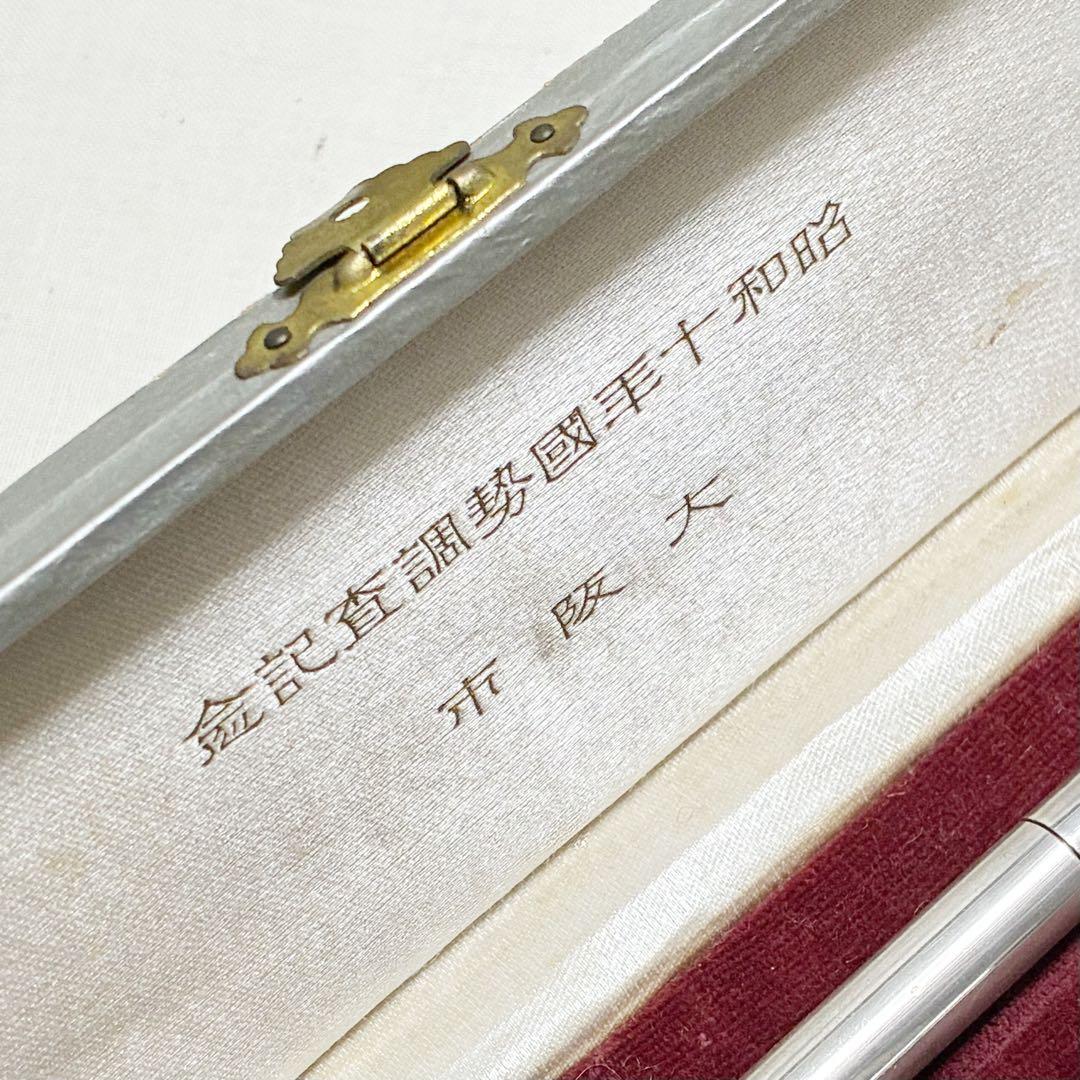 昭和十年國勢調査記念
大阪市